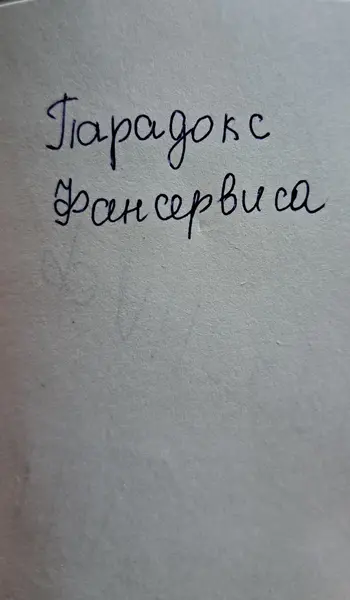 Парадокс
Фансервиса